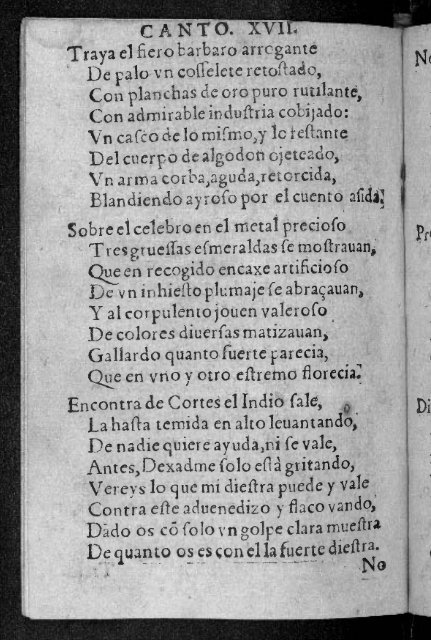 CANTO. XVII.
Traya el fiero barbaro arrogante
De palo vn cosselete retostado,
Con planchas de oro puro rutilante,
Con admirable industria cobijado:
Vn casco de lo mismo, y lo restante
Del cuerpo de algodon ojeteado,
Vn arma corba, aguda, retorcida,
Blandiendo ayroso por el cuento asida.
Sobre el celebro en el metal precioso
Tres gruessas esmeraldas se mostrauan,
Que en recogido encaxe artificioso
De vn inhiesto plumaje se abraçauan,
Y al corpulento jouen valeroso
De colores diuersas matizauan,
Gallardo quanto fuerte parecia,
Que en vno y otro estremo florecia.
Encontra de Cortes el Indio sale,
La hasta temida en alto leuantando,
De nadie quiere ayuda, ni se vale,
Antes, Dexadme solo està gritando,
Vereys lo que mi diestra puede y vale
Contra este aduenedizo y flaco vando,
Dãdo os cõ solo vn golpe clara muestra
De quanto os es con ella fuerte diestra.
No
No
Pr
Di